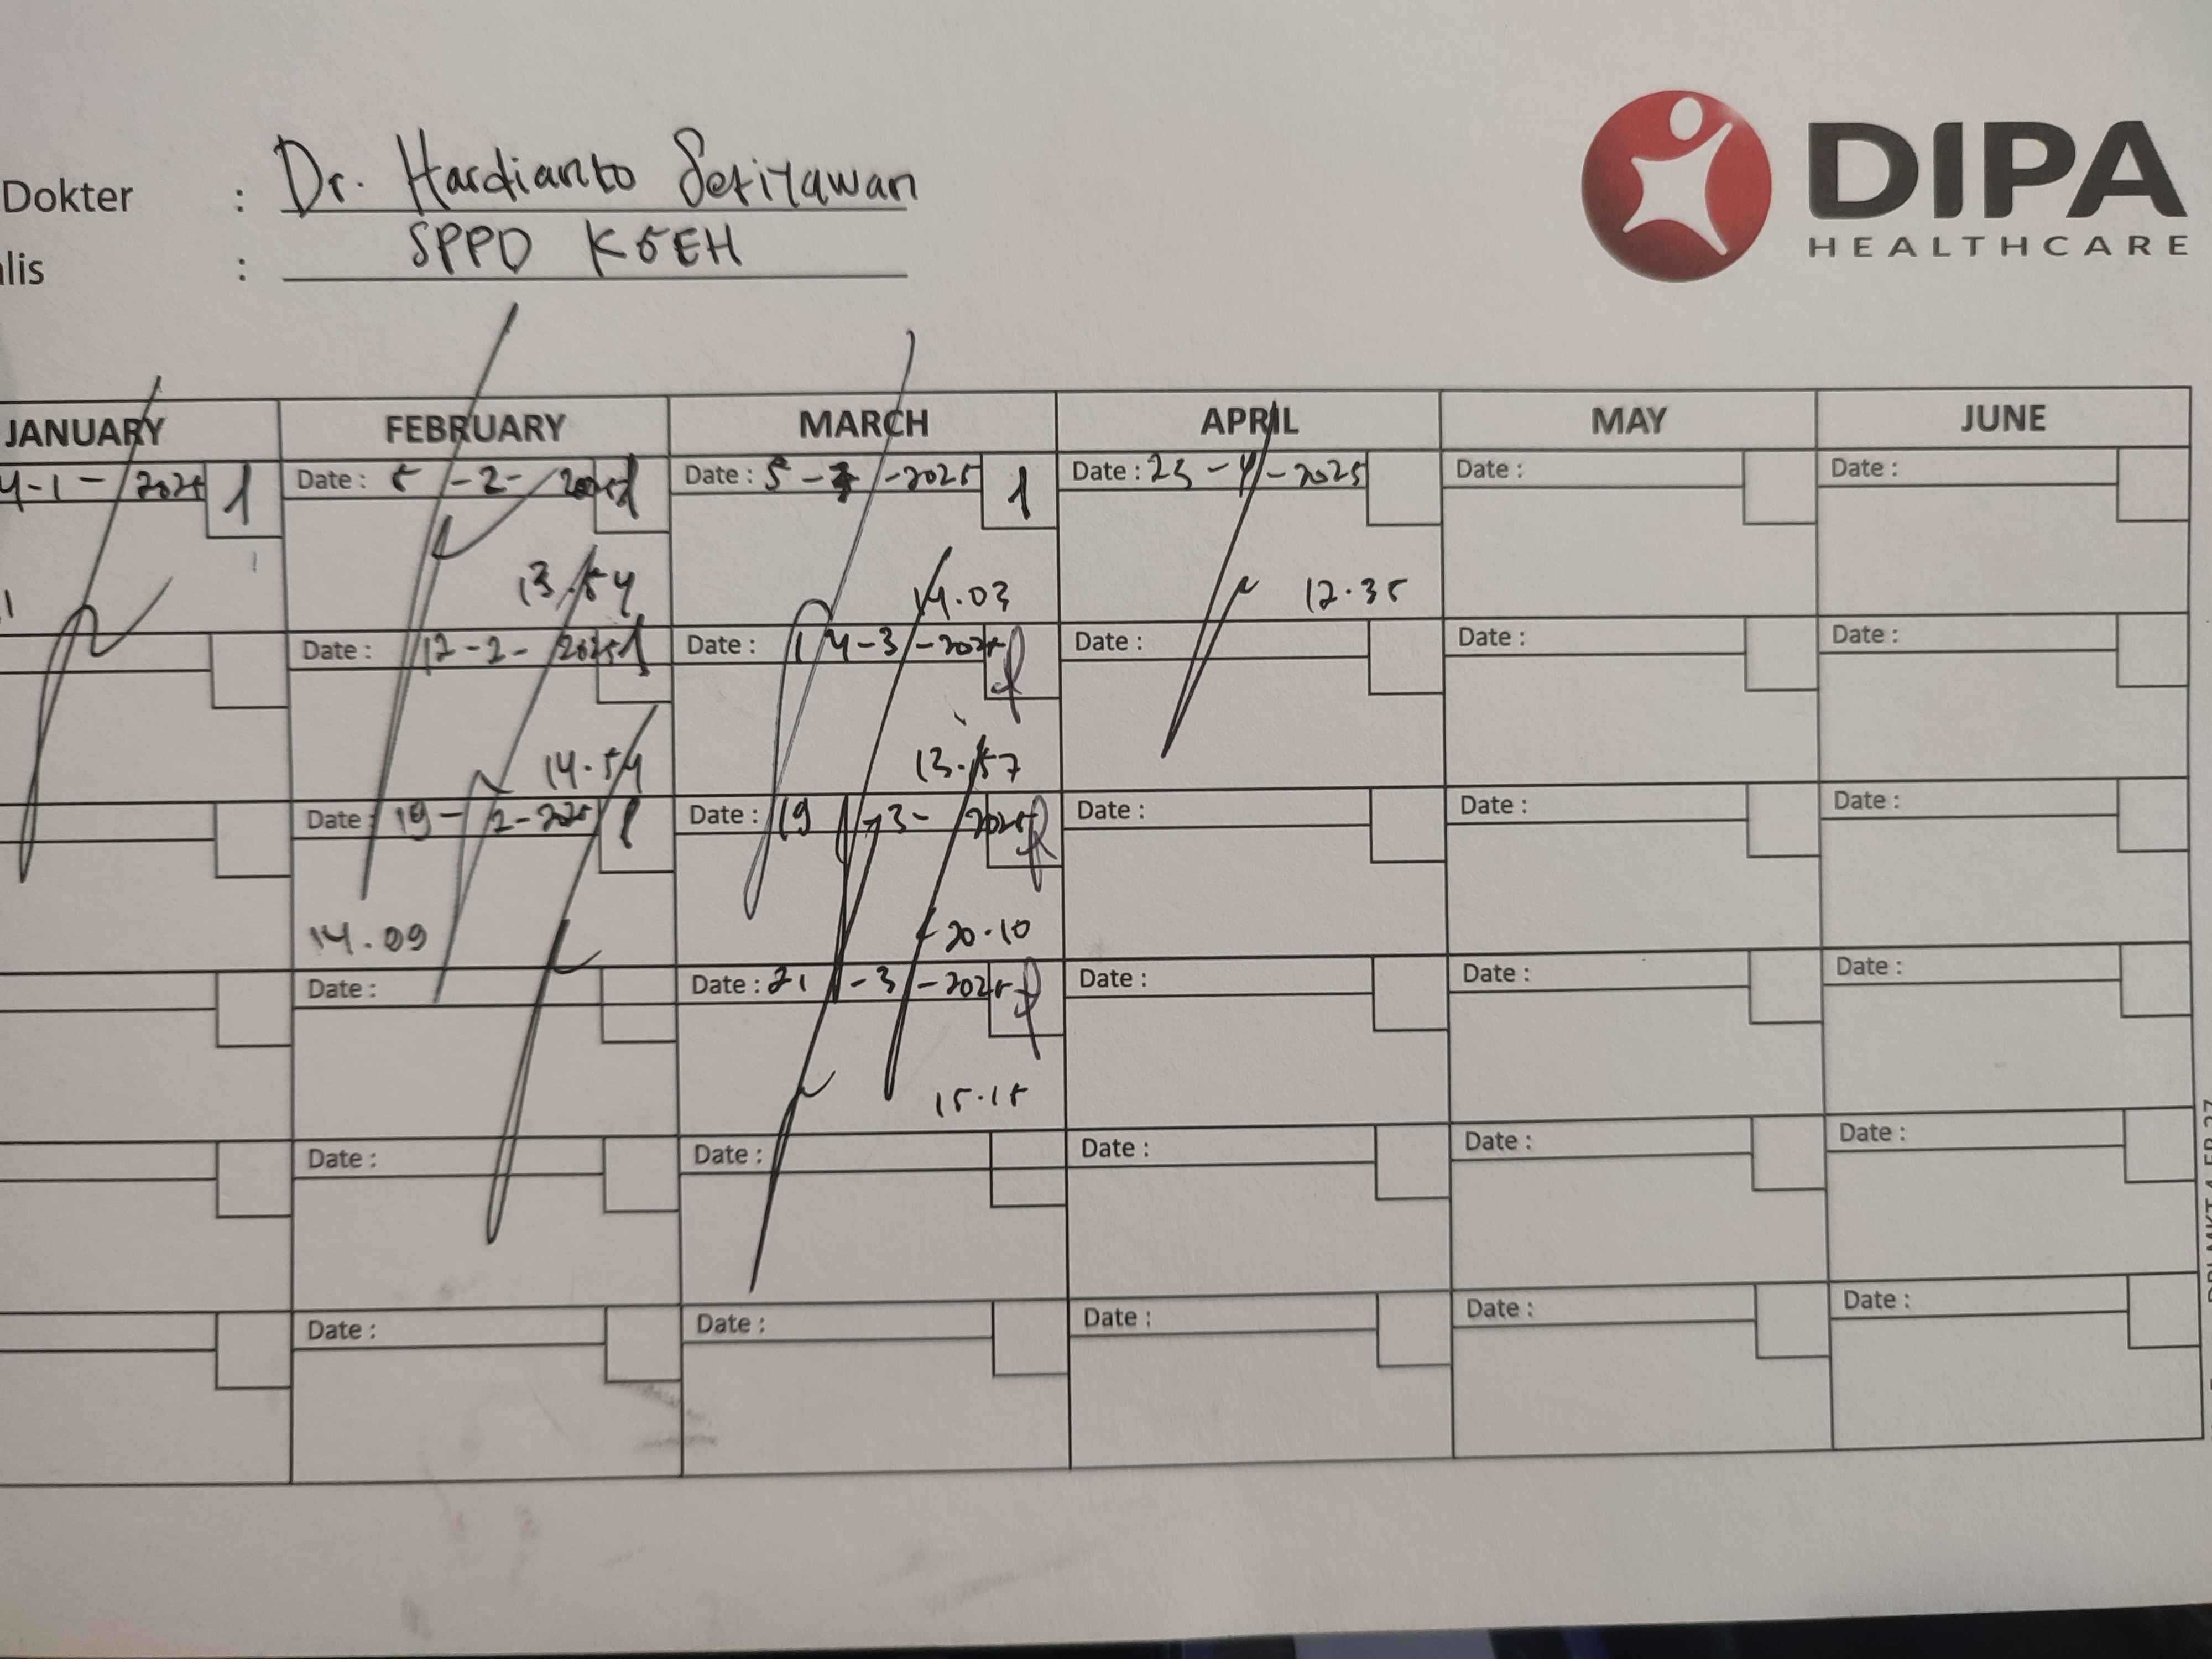 Dokter : Dr. Hardianto Setiyawan
lis : SPPD KGEH
DIPA
HEALTHCARE
JANUARY FEBRUARY MARCH APRIL MAY JUNE
4-1-2025 1 Date : 5-2-2025 1 Date : 5-3-2025 1 Date : 23-4-2025 Date : Date :
13.54 14.03 12.35
Date : 12-2-2025 1 Date : 14-3-2025 Date : Date : Date :
14.54 13.57
Date : 19-2-2025 1 Date : 19-3-2025 Date : Date : Date :
14.09 20.10
Date : Date : 21-3-2025 Date : Date : Date :
15.15
Date : Date : Date : Date : Date :
Date : Date : Date : Date : Date :